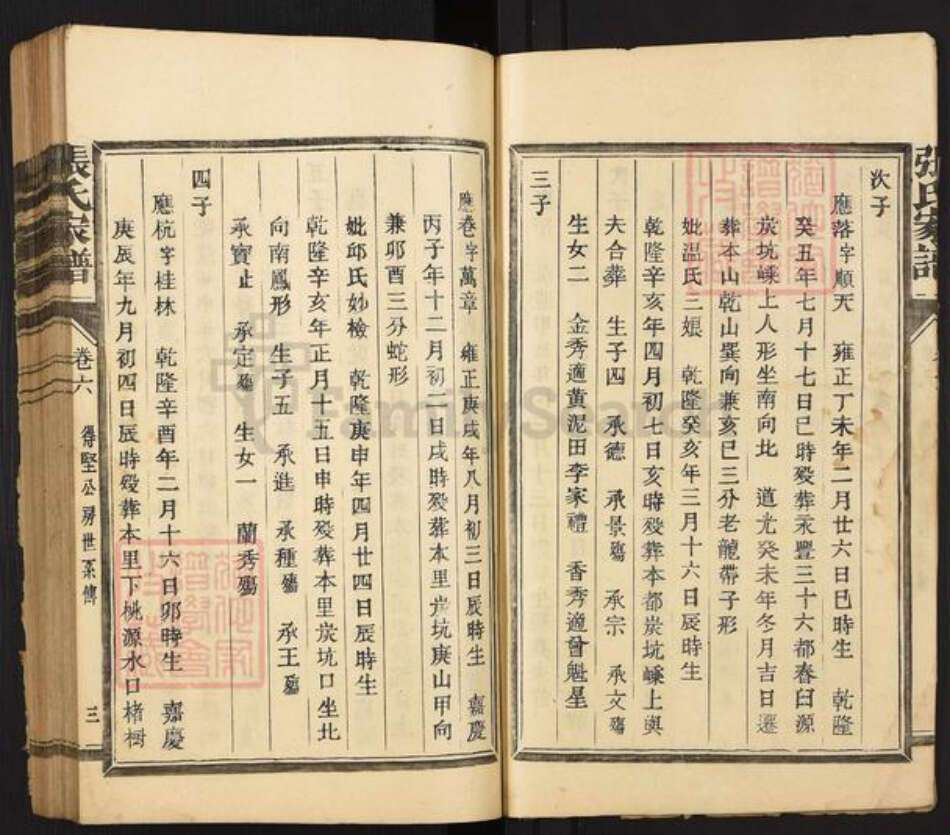 次子
應落字順天 雍正丁未年二月廿六日巳時生 乾隆
癸五年七月十七日巳時殁葬永豐三十六都春臼源
炭坑嵊上人形坐南向北 道光癸未年冬月吉日遷
葬本山乾山巽向兼亥巳三分老龍帶子形
妣温氏三娘 乾隆癸亥年三月十六日辰時生
乾隆辛亥年四月初七日亥時殁葬本都炭坑嵊上與
夫合葬 生子四 承德 承景殤 承宗 承文殤
生女二 金秀適黃泥田李家禮 香秀適曾魁星
三子
應卷字萬章 雍正庚戌年八月初三日辰時生 嘉慶
丙子年十二月初二日戌時殁葬本里炭坑庚山甲向
兼卯酉三分蛇形
妣邱氏妙檢 乾隆庚申年四月廿四日辰時生
乾隆辛亥年正月十五日申時殁葬本里炭坑口坐北
向南鳳形 生子五 承進 承種殤 承王殤
承寶止 承定殤 生女一 蘭秀殤
四子
應杭字桂林 乾隆辛酉年二月十六日卯時生 嘉慶
庚辰年九月初四日辰時殁葬本里下桃源水口楮樹
張氏家譜
卷六
得堅公房世系傳
三
張氏家譜
FamilySearch